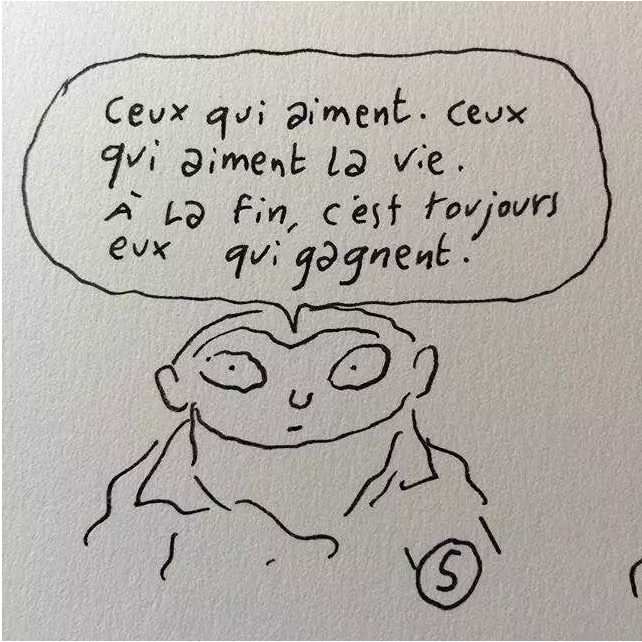 Ceux qui aiment. Ceux
qui aiment la vie.
À la fin, c'est toujours
eux qui gagnent.
5